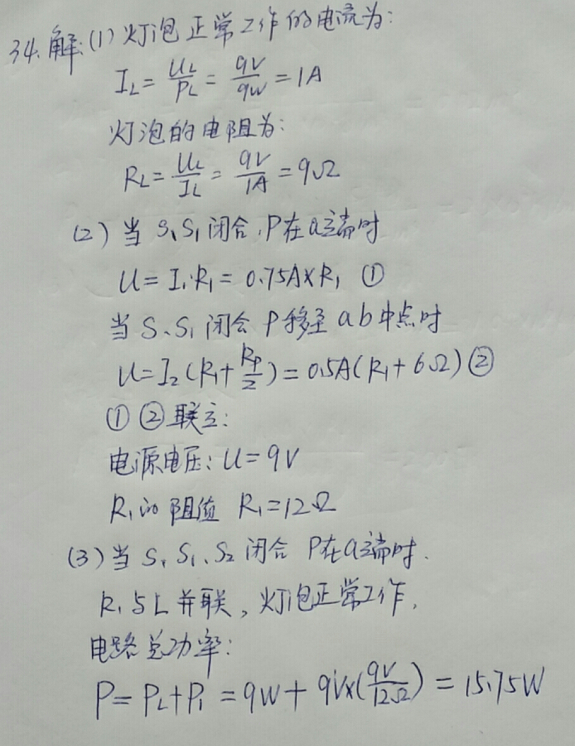 34.解:(1)灯泡正常工作的电流为:
I_L=U_L/P_L=9V/9W=1A
灯泡的电阻为:
R_L=U_L/I_L=9V/1A=9Ω
(2)当S、S₁闭合,P在a端时
U=I₁·R₁=0.75A×R₁ ①
当S、S₁闭合P移至ab中点时
U=I₂(R₁+R_P/2)=0.5A(R₁+6Ω)②
①②联立:
电源电压:U=9V
R₁的阻值 R₁=12Ω
(3)当S、S₁、S₂闭合 P在a端时.
R₁与L并联,灯泡正常工作,
电路总功率:
P=P_L+P₁=9W+9V×(9V/12Ω)=15.75W